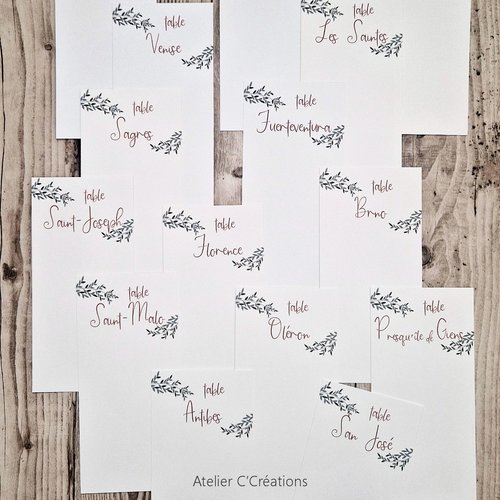 table
Venise
table
Les Saintes
table
Sagres
table
Fuerteventura
table
Saint-Joseph
table
Florence
table
Brno
table
Saint-Malo
table
Oléron
table
Presqu'île de Giens
table
Antibes
table
San José
Atelier C'Créations